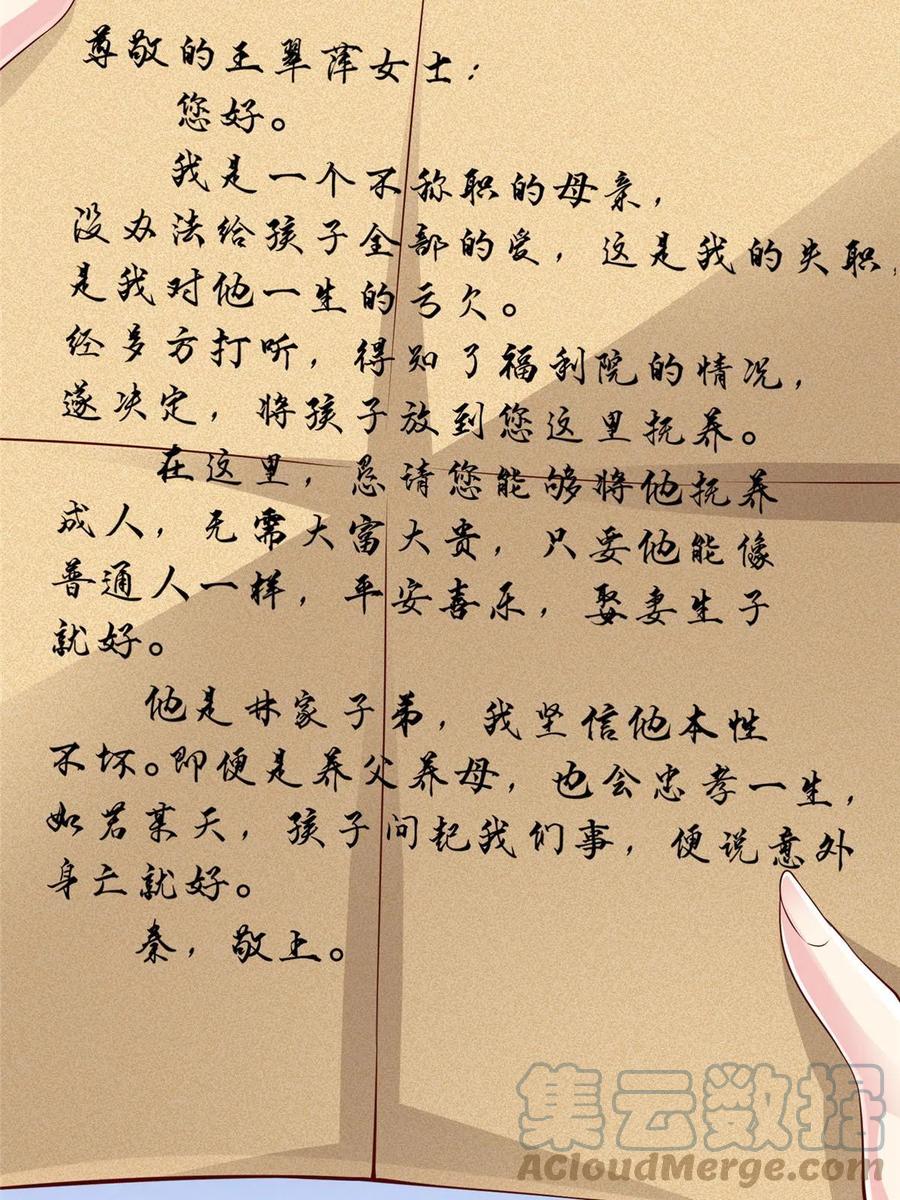 尊敬的王翠萍女士：
您好。
我是一个不称职的母亲，
没办法给孩子全部的爱，这是我的失职，
是我对他一生的亏欠。
经多方打听，得知了福利院的情况，
遂决定，将孩子放到您这里抚养。
在这里，恳请您能够将他抚养
成人，无需大富大贵，只要他能像
普通人一样，平安喜乐，娶妻生子
就好。
他是林家子弟，我坚信他本性
不坏。即便是养父养母，也会忠孝一生，
如若某天，孩子问起我们事，便说意外
身亡就好。
秦，敬上。
集云数据
ACloudMerge.com